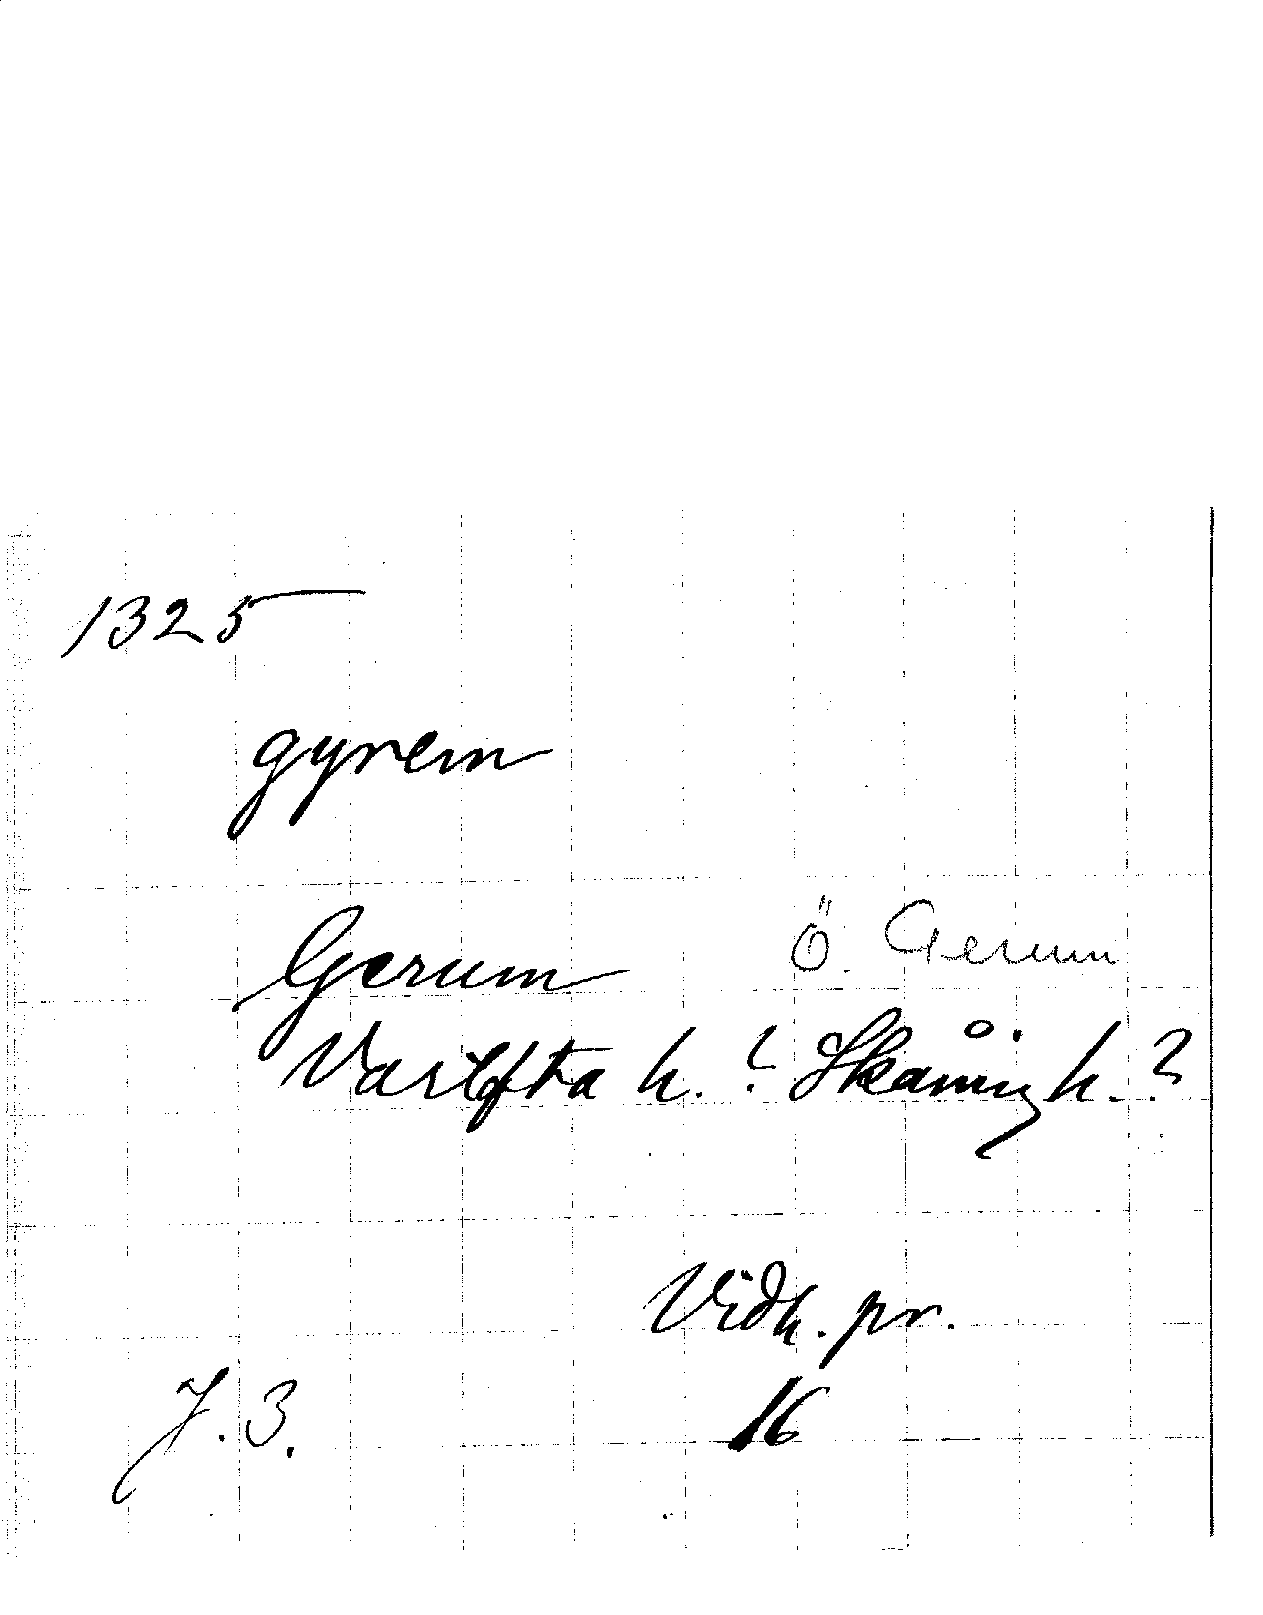 1325
gyrem
Gerum Ö. Gerum
Vartofta h.? Skånings h.?
Vidh. pr.
J. 3. 16